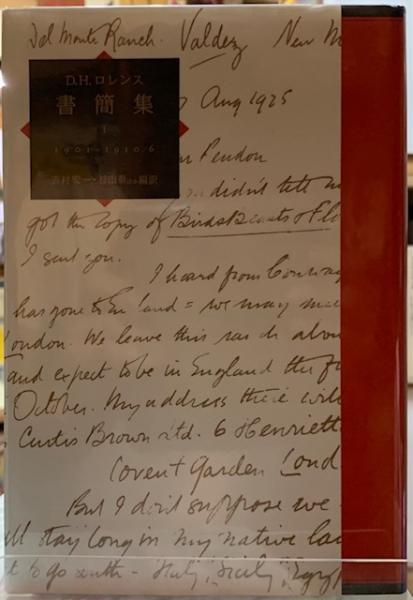 Del Monte Ranch. Valdez New M
D.H.ロレンス
書簡集
I
1901–1910/6
吉村宏一・杉山泰ほか編訳
Aug 1925
didn't tell m
got the copy of Birds Beasts & Flo
I sent you.
I heard from Conway
has gone to En land = we may
London. We leave this ranch abou
and expect to be in England the fi
October. My address there will
Curtis Brown Ltd. 6 Henriett
Covent Garden Lond
But I don't suppose we
ll stay long in my native la
t to go south - Italy, Sicily, Egyp